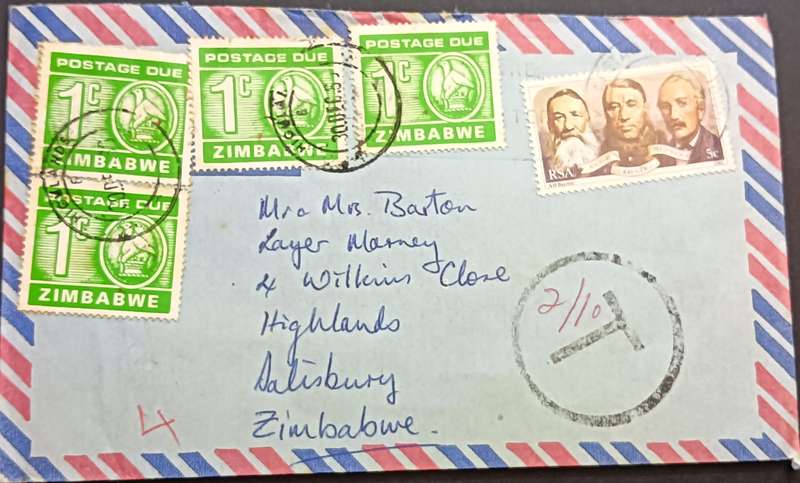 POSTAGE DUE
1c
ZIMBABWE
POSTAGE DUE
1c
ZIMBABWE
POSTAGE DUE
1c
ZIMBABWE
POSTAGE DUE
1c
ZIMBABWE
RSA
5c
Mr & Mrs. Barton
Layer Marney
4 Wilkins Close
Highlands
Salisbury
Zimbabwe.
2/10
T
4